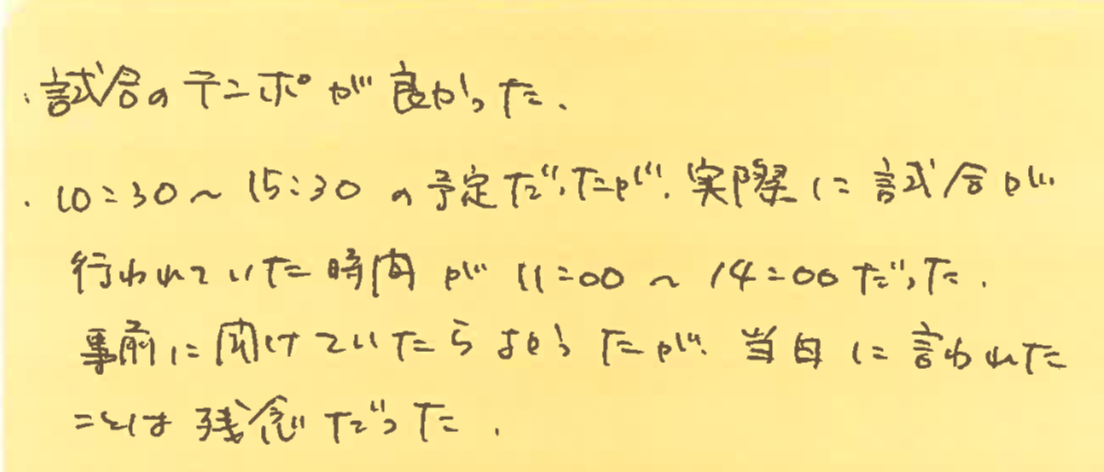 ・試合のテンポが良かった。
・10:30～15:30の予定だったが、実際に試合が
行われていた時間が11:00～14:00だった。
事前に聞けていたらよかったが、当日に言われた
ことは残念だった。